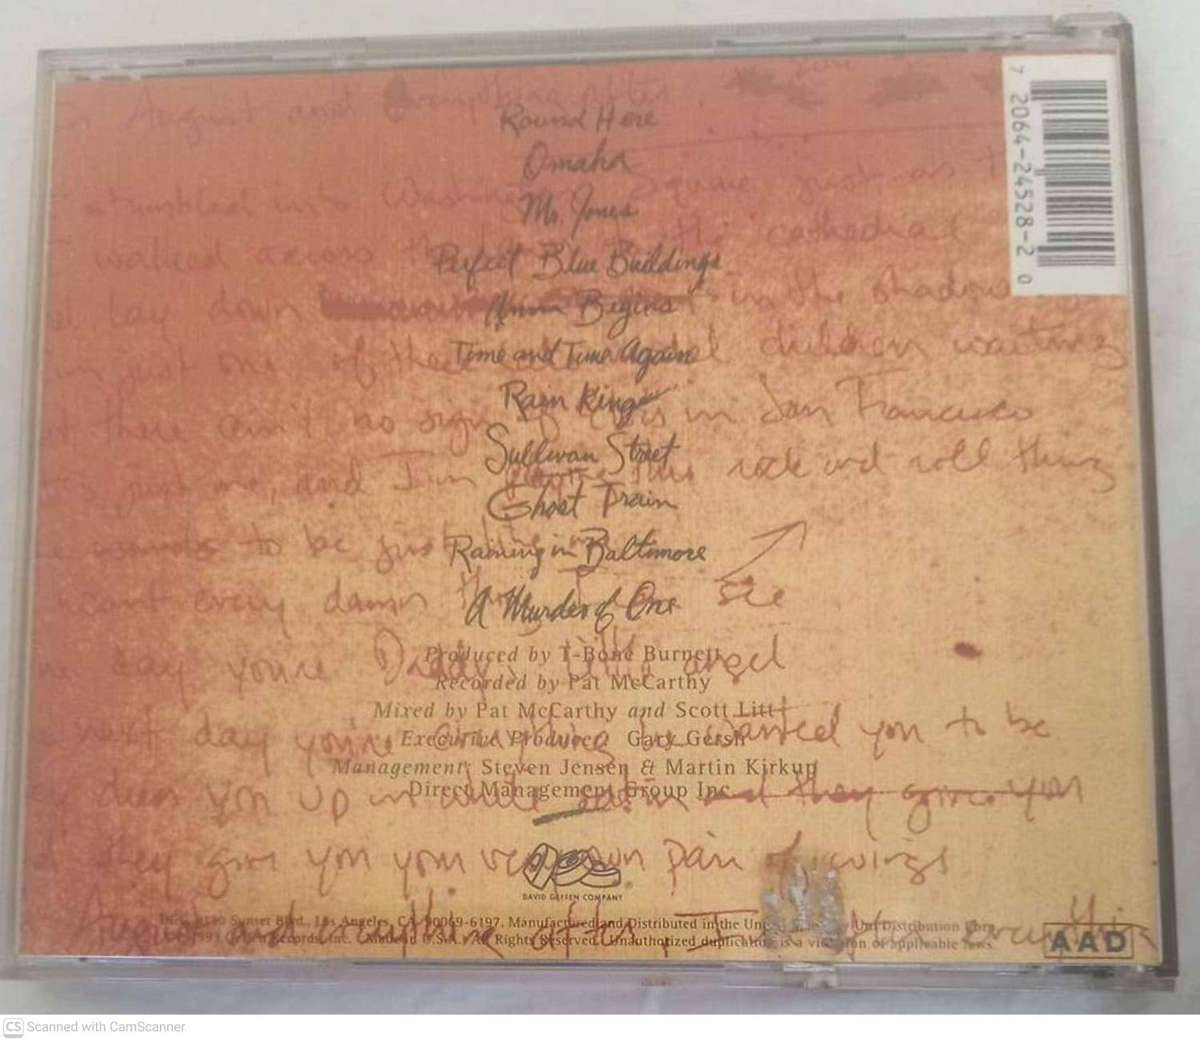 August and everything after,
Round Here
Omaha
stumbled into Washington Square just as
Mr. Jones
walked across the cathedral
Perfect Blue Buildings
lay down in the shadow
Anna Begins
just one of these children waiting
Time and Time Again
Rain King
there ain't no sign of in San Francisco
Sullivan Street
just me, and I'm this rock and roll thing
Ghost Train
wants to be just
Raining in Baltimore
every damn
see
A Murder of One
day you're Daddy's little angel
Produced by T-Bone Burnett
Recorded by Pat McCarthy
Mixed by Pat McCarthy and Scott Litt
next day you're wanted you to be
Executive Producer: Gary Gersh
Management: Steven Jensen & Martin Kirkup
Direct Management Group Inc.
dress you up in white satin and they give you
they give you your very own pair of wings
DAVID GEFFEN COMPANY
®
9130 Sunset Blvd., Los Angeles, CA 90069-6197. Manufactured and Distributed in the Uni Distribution Corp.
Geffen Records, Inc. U.S.A. All Rights Reserved. Unauthorized duplication is a violation of applicable laws.
August and everything after, I everything
AAD
7 2064-24528-2 0
CS Scanned with CamScanner